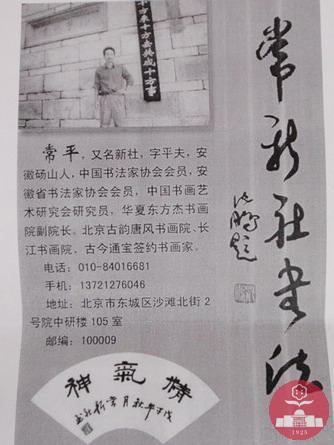 常新社书法
沈鹏题
十方来十方去共成十方事
常平，又名新社，字平夫，安
徽砀山人，中国书法家协会会员，安
徽省书法家协会会员，中国书画艺
术研究会研究员，华夏东方杰书画
院副院长。北京古韵唐风书画院、长
江书画院、古今通宝签约书画家。
电话：010-84016681
手机：13721276046
地址：北京市东城区沙滩北街2
号院中研楼105室
邮编：100009
精氣神
1925